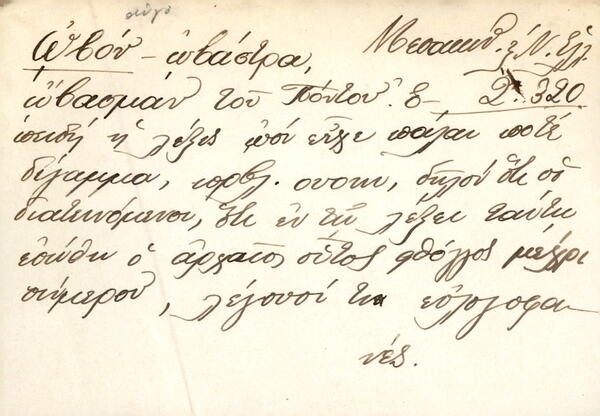 αὐγό
Ὠβόν - ὠβάστρα, Μεσαιων. ἑ Ν. Ἑλ.
ὠβασμάν τοῦ Πόντου. Ἐ- 2. 320
πειδή ἡ λέξις ᾠόν εἶχε πάλαι ποτέ
δίγαμμα, πρβλ. ουουμ, δηλοῖ ὅτι οἱ
διατεινόμενοι, ὅτι ἐν τῇ λέξει ταύτῃ
ἐσώθη ὁ ἀρχαῖος οὗτος φθόγγος μέχρι
σήμερον, λέγουσί τι εὐλογοφα-
νές.